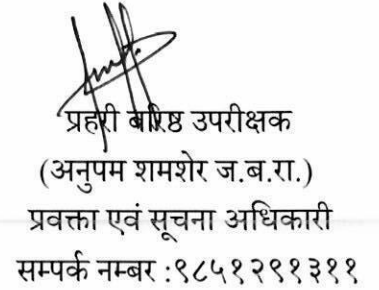 प्रहरी बरिष्ठ उपरीक्षक
(अनुपम शमशेर ज.ब.रा.)
प्रवक्ता एवं सूचना अधिकारी
सम्पर्क नम्बर :९८५१२९१३११